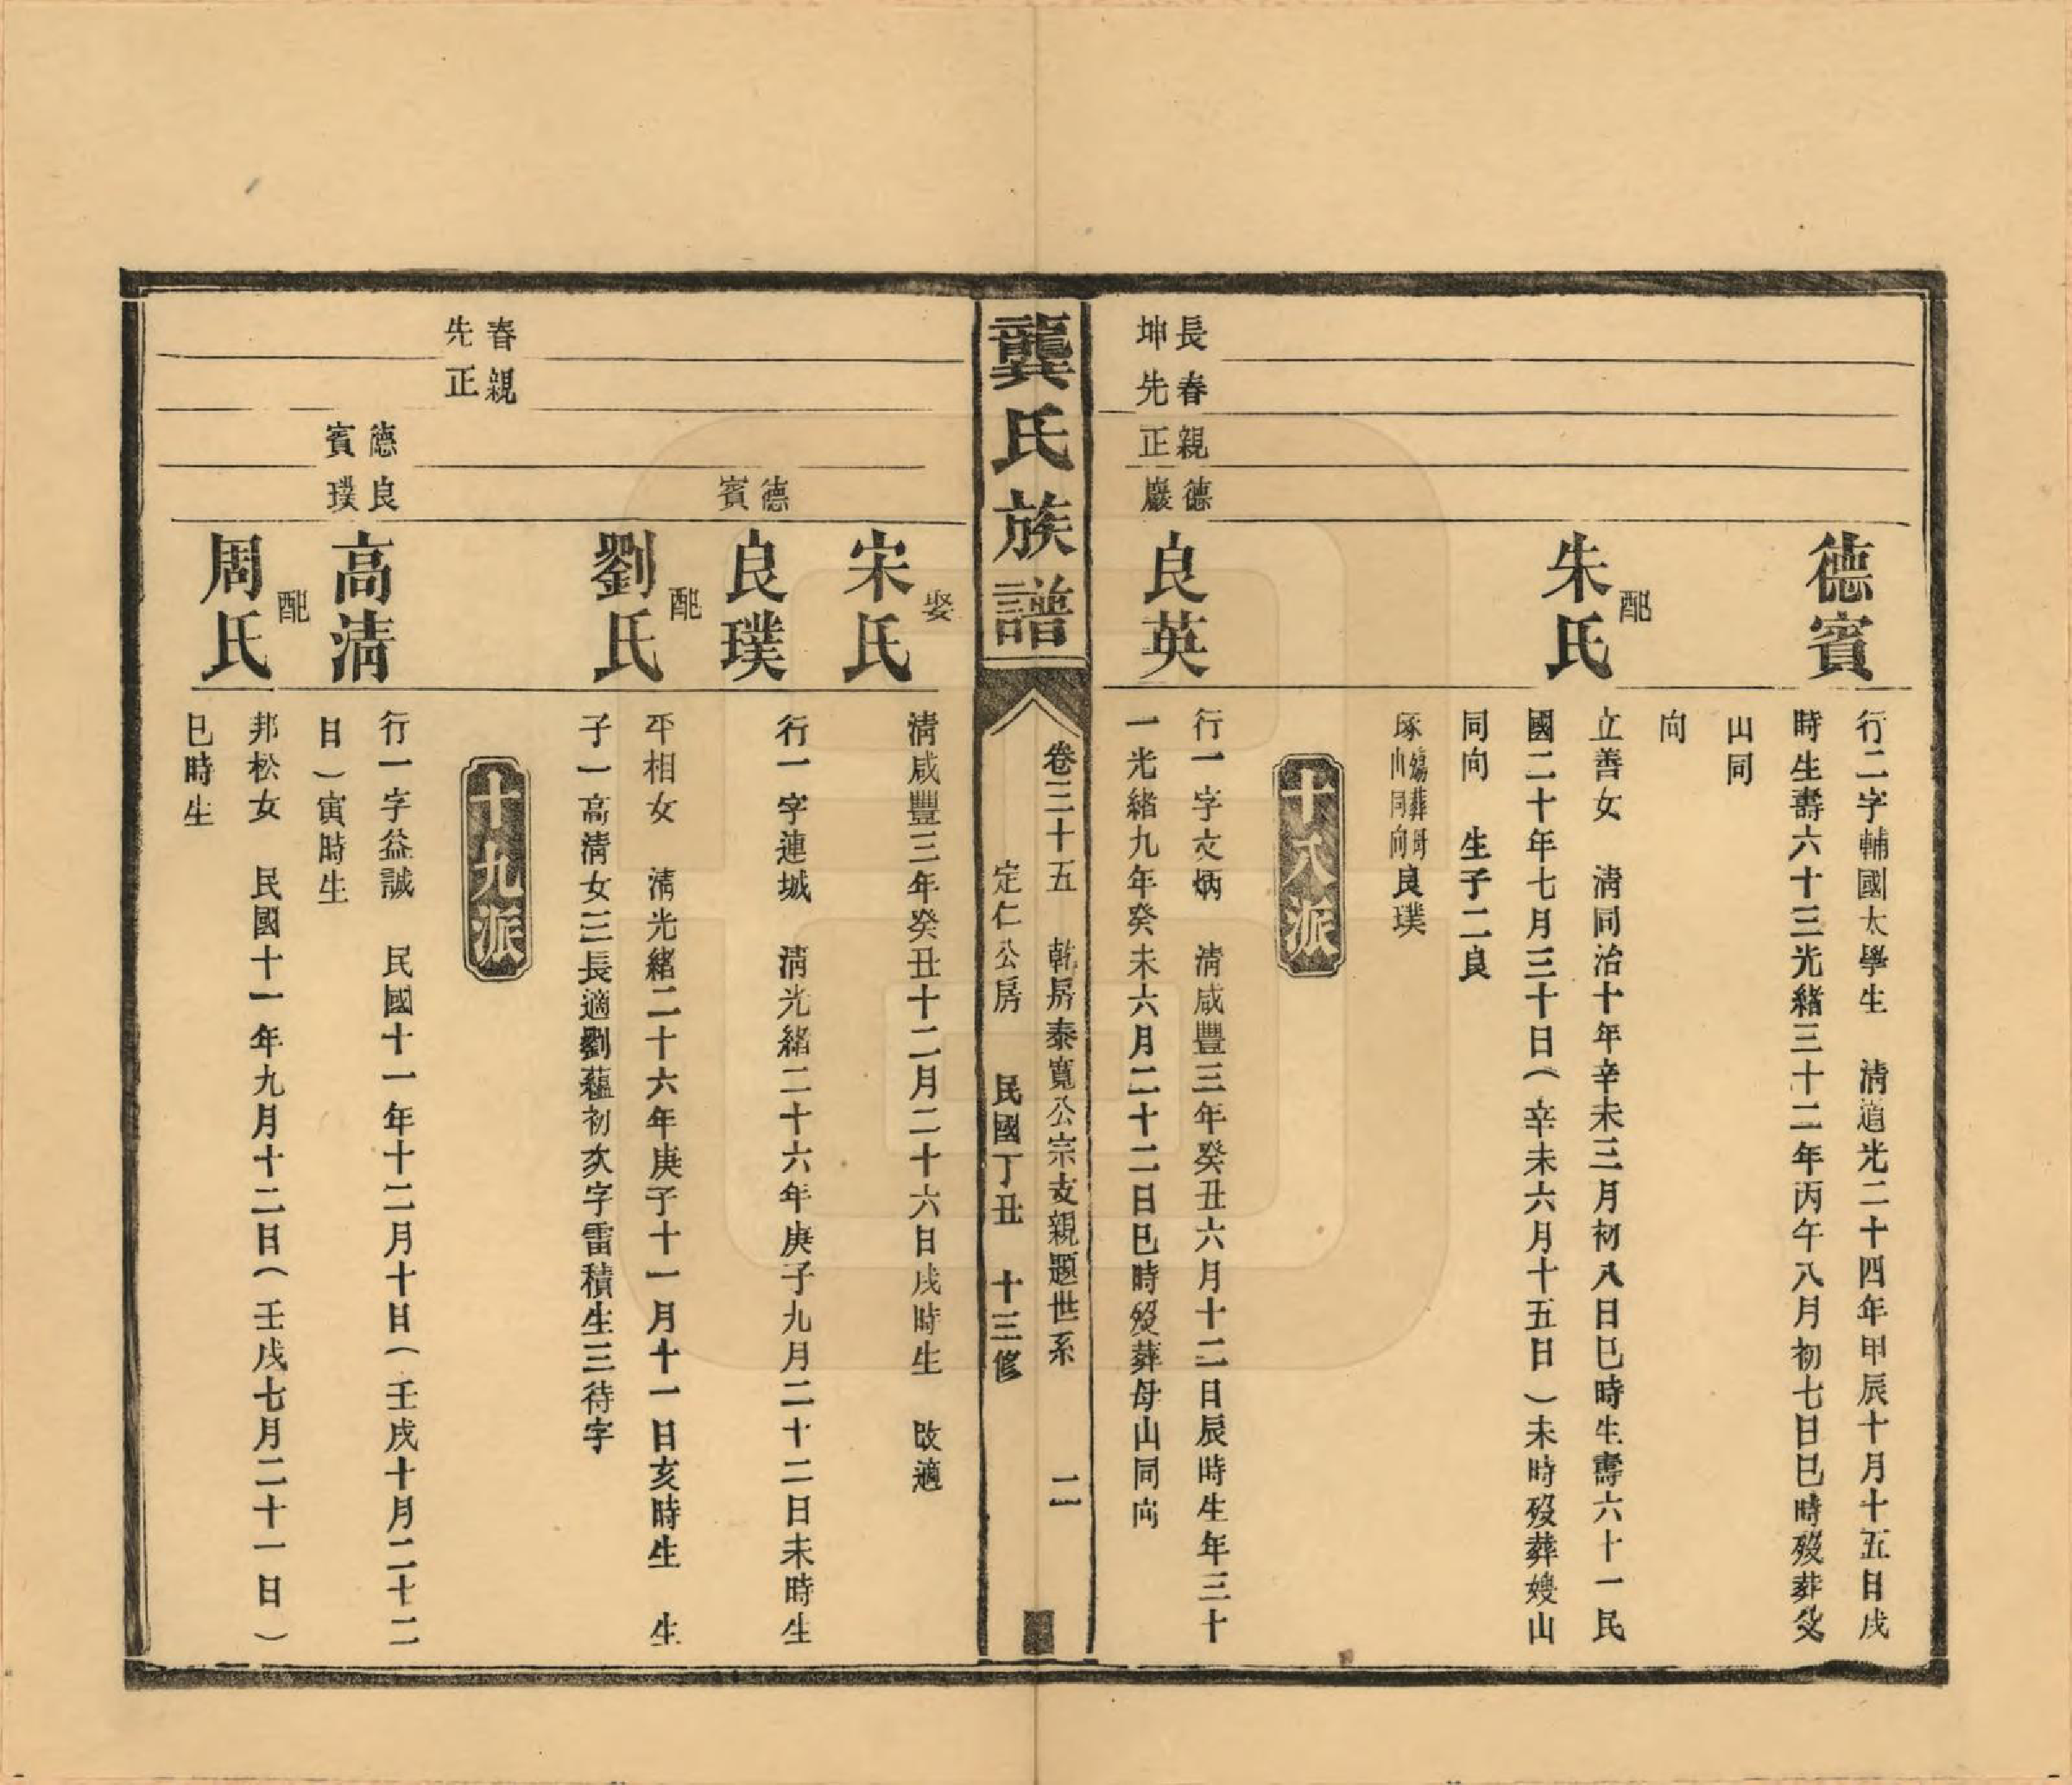 德賓
行二字輔國太學生　淸道光二十四年甲辰十月十五日戌
時生壽六十三光緒三十二年丙午八月初七日巳時歿葬父
山同
向
配
朱氏
立善女　淸同治十年辛未三月初八日巳時生壽六十一民
國二十年七月三十日（辛未六月十五日）未時歿葬嫂山
同向　生子二良
琢殤葬母山同向良璞
十八派
長春親德
坤先正嚴
良英
行一字文炳　淸咸豐三年癸丑六月十二日辰時生年三十
一光緒九年癸未六月二十二日巳時歿葬母山同向
龔氏族譜
卷三十五　乾房泰寬公宗支親題世系　二
定仁公房　民國丁丑　十三修
娶
宋氏
淸咸豐三年癸丑十二月二十六日戌時生　改適
德
賓
良璞
行一字連城　淸光緒二十六年庚子九月二十二日未時生
配
劉氏
平相女　淸光緒二十六年庚子十一月十一日亥時生　生
子一高淸女三長適劉蘊初次字雷積生三待字
春親
先正
十九派
德良
賓璞
高淸
行一字益誠　民國十一年十二月十日（壬戌十月二十二
日）寅時生
配
周氏
邦松女　民國十一年九月十二日（壬戌七月二十一日）
巳時生